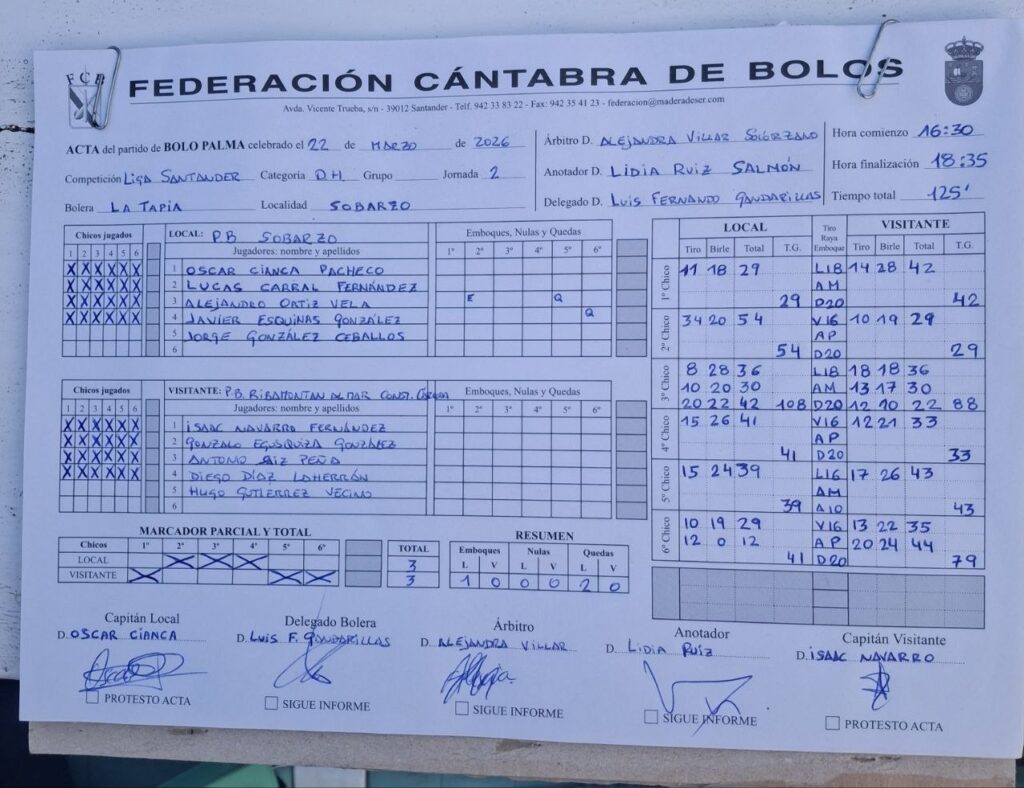 FCB
FEDERACIÓN CÁNTABRA DE BOLOS
Avda. Vicente Trueba, s/n - 39012 Santander - Telf. 942 33 83 22 - Fax: 942 35 41 23 - federacion@maderadeser.com
ACTA del partido de BOLO PALMA celebrado el 22 de MARZO de 2026
Competición LIGA SANTANDER Categoría D.H. Grupo Jornada 2
Bolera LA TAPIA Localidad SOBARZO
Árbitro D. ALEJANDRA VILLAR SOLÓRZANO
Anotador D. LIDIA RUIZ SALMÓN
Delegado D. LUIS FERNANDO GANDARILLAS
Hora comienzo 16:30
Hora finalización 18:35
Tiempo total 125'
Chicos jugados LOCAL: P.B. SOBARZO Emboques, Nulas y Quedas
1 2 3 4 5 6 Jugadores: nombre y apellidos 1º 2º 3º 4º 5º 6º
X X X X X X 1 OSCAR CIANCA PACHECO
X X X X X X 2 LUCAS CARRAL FERNÁNDEZ
X X X X X X 3 ALEJANDRO ORTIZ VELA E Q
X X X X X X 4 JAVIER ESQUINAS GONZÁLEZ Q
5 JORGE GONZÁLEZ CEBALLOS
6
Chicos jugados VISITANTE: P.B. RIBAMONTÁN AL MAR CONST. Emboques, Nulas y Quedas
1 2 3 4 5 6 Jugadores: nombre y apellidos 1º 2º 3º 4º 5º 6º
X X X X X X 1 ISAAC NAVARRO FERNÁNDEZ
X X X X X X 2 GONZALO EGUSQUIZA GONZÁLEZ
X X X X X X 3 ANTONIO SAIZ PEÑA
X X X X X X 4 DIEGO DÍAZ LAHERRÁN
5 HUGO GUTIERREZ VECINO
6
LOCAL VISITANTE
Tiro Birle Total T.G. Tiro Raya Emboque Tiro Birle Total T.G.
1º Chico 11 18 29 L18 14 28 42
AM
29 D20 42
2º Chico 34 20 54 V16 10 19 29
AP
54 D20 29
3º Chico 8 28 36 L18 18 18 36
10 20 30 AM 13 17 30
20 22 42 108 D20 12 10 22 88
4º Chico 15 26 41 V16 12 21 33
AP
41 D20 33
5º Chico 15 24 39 L16 17 26 43
AM
39 A10 43
6º Chico 10 19 29 V16 13 22 35
12 0 12 AP 20 24 44
41 D20 79
MARCADOR PARCIAL Y TOTAL
Chicos 1º 2º 3º 4º 5º 6º TOTAL
LOCAL X X X 3
VISITANTE X X X 3
RESUMEN
Emboques Nulas Quedas
L V L V L V
1 0 0 0 2 0
Capitán Local
D. OSCAR CIANCA
PROTESTO ACTA
Delegado Bolera
D. LUIS F. GANDARILLAS
SIGUE INFORME
Árbitro
D. ALEJANDRA VILLAR
SIGUE INFORME
Anotador
D. LIDIA RUIZ
SIGUE INFORME
Capitán Visitante
D. ISAAC NAVARRO
PROTESTO ACTA